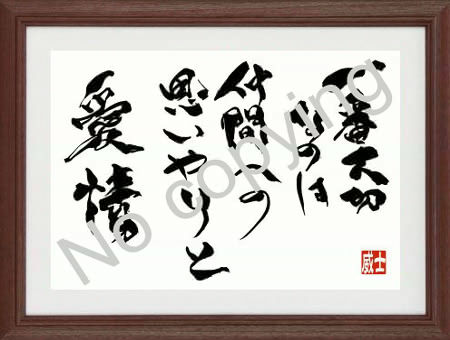 一番大切
なのは
仲間への
思いやりと
愛情
威士
No copying